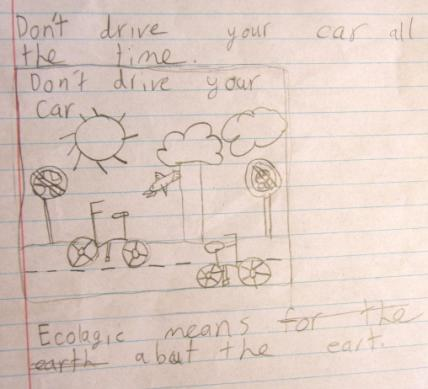 Don't drive your car all
the time.
Don't drive your
car
Ecolagic means for the
earth about the eart.